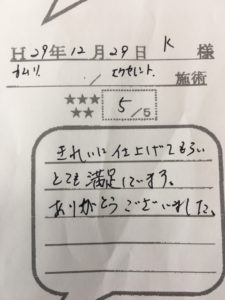 H29年12月29日 K 様
オムリ / エクセレント 施術
★★★
★★
5/5
きれいに仕上げてもらい
とても満足しています。
ありがとうございました。